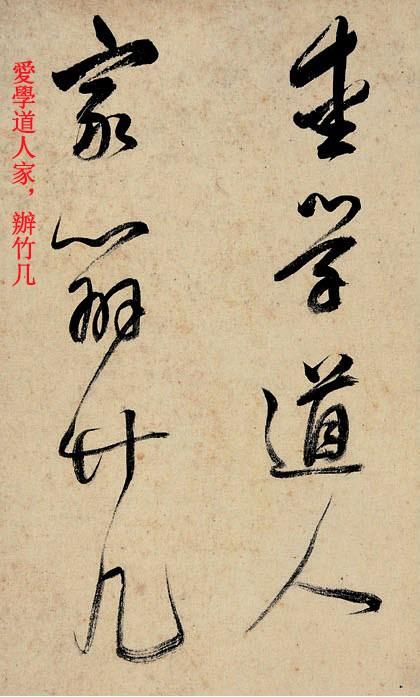 愛學道人
家辦竹几
愛學道人家，辦竹几